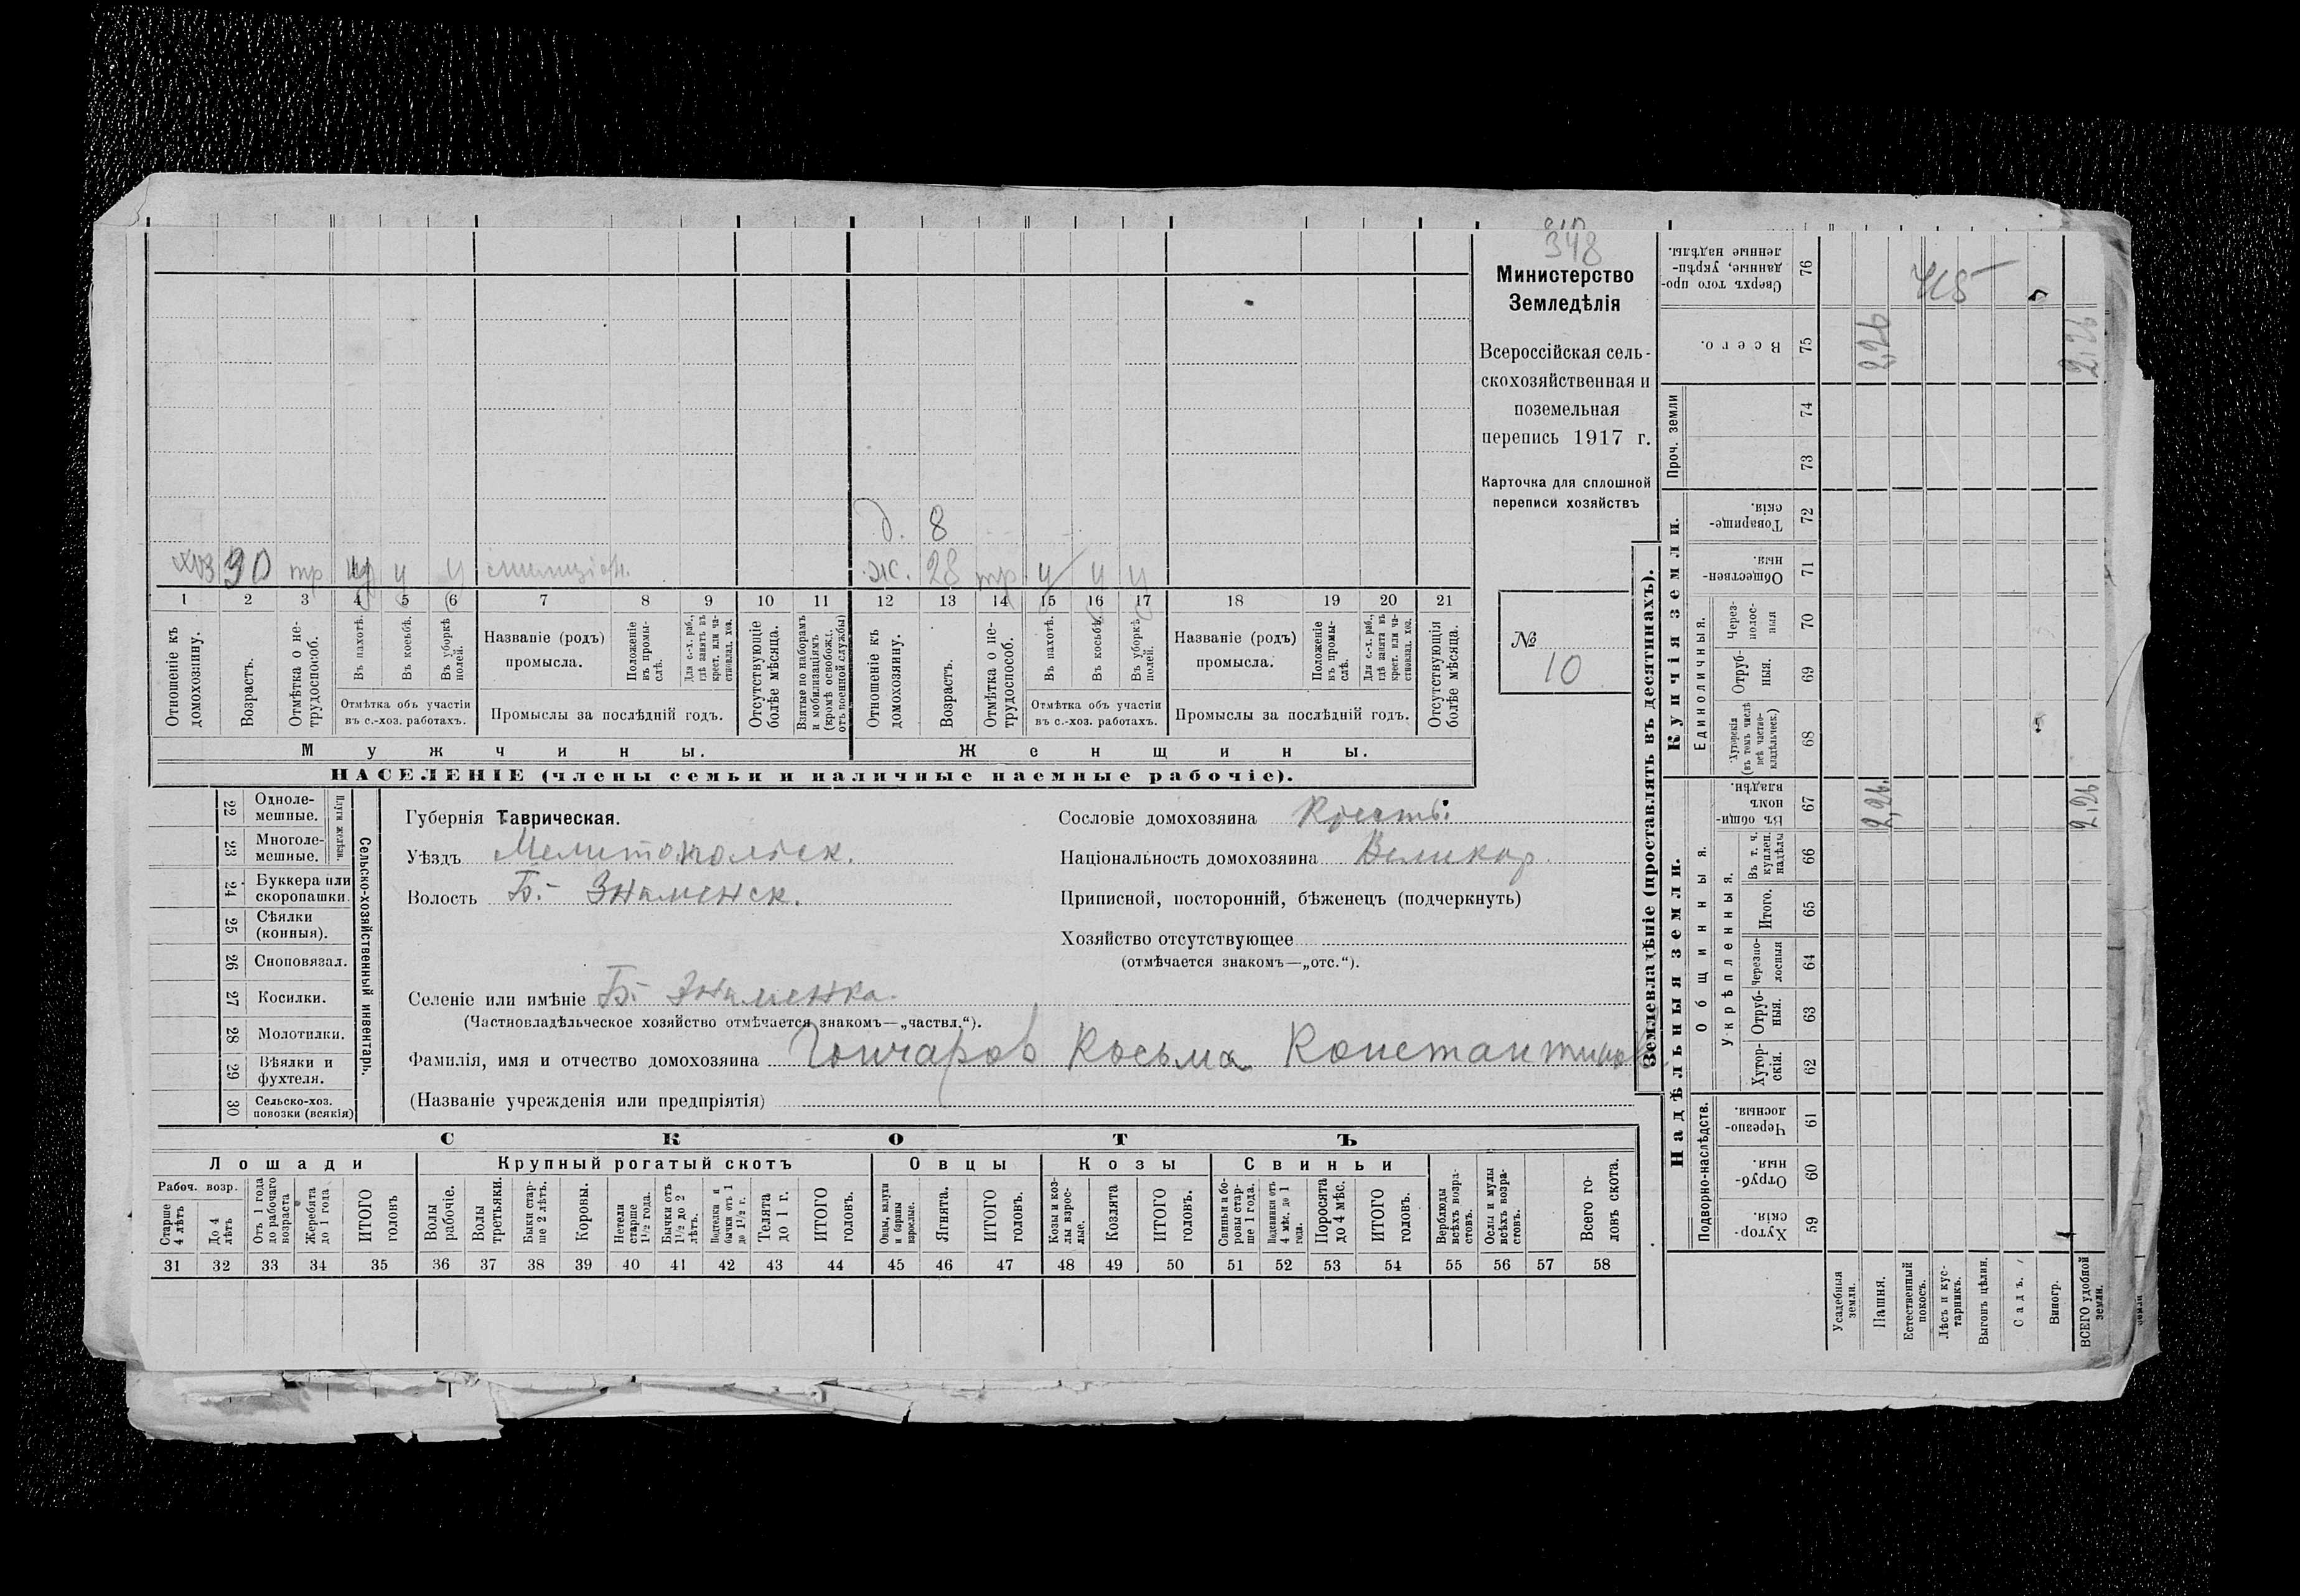 348
Министерство
Земледѣлія
Всероссійская сель-
скохозяйственная и
поземельная
перепись 1917 г.
Карточка для сплошной
переписи хозяйствъ
№
10
д. 8
хоз 30 тр у у у
ж. 28 тр у у у
1 2 3 4 5 6 7 8 9 10 11 12 13 14 15 16 17 18 19 20 21
Отношеніе къ домохозяину.
Возрастъ.
Отмѣтка о не-трудоспособ.
Въ пахотѣ.
Въ косьбѣ.
Въ уборкѣ полей.
Названіе (родъ) промысла.
Положеніе въ промы-слѣ.
Для с.-х. раб., гдѣ занятъ въ крест. или ча-стновлад. хоз.
Отсутствующіе болѣе мѣсяца.
Взятые по наборамъ и мобилизаціямъ (кромѣ освобожд. отъ военной службы)
Отмѣтка объ участіи въ с.-хоз. работахъ.
Промыслы за послѣдній годъ.
Отношеніе къ домохозяину.
Возрастъ.
Отмѣтка о не-трудоспособ.
Въ пахотѣ.
Въ косьбѣ.
Въ уборкѣ полей.
Названіе (родъ) промысла.
Положеніе въ промы-слѣ.
Для с.-х. раб., гдѣ занята въ крест. или ча-стновлад. хоз.
Отсутствующія болѣе мѣсяца.
Отмѣтка объ участіи въ с.-хоз. работахъ.
Промыслы за послѣдній годъ.
Мужчины. Женщины.
НАСЕЛЕНІЕ (члены семьи и наличные наемные рабочіе).
Сельско-хозяйственный инвентарь.
Плуги желѣзн.
22 Одноле-мешные.
23 Многоле-мешные.
24 Буккера или скоропашки.
25 Сѣялки (конныя).
26 Сноповязал.
27 Косилки.
28 Молотилки.
29 Вѣялки и фухтеля.
30 Сельско-хоз. повозки (всякія)
Губернія Таврическая.
Уѣздъ Мелитопольск.
Волость Б.- Знаменск.
Селеніе или имѣніе Б.- Знаменка.
(Частновладѣльческое хозяйство отмѣчается знакомъ—„частвл.“).
Фамилія, имя и отчество домохозяина Гончаров Косьма Константинов
(Названіе учрежденія или предпріятія)
Сословіе домохозяина Крестъ.
Національность домохозяина Великор.
Приписной, посторонній, бѣженецъ (подчеркнуть)
Хозяйство отсутствующее
(отмѣчается знакомъ—„отс.“).
СКОТЪ
Лошади Крупный рогатый скотъ Овцы Козы Свиньи
Рабоч. возр.
Старше 4 лѣтъ
До 4 лѣтъ
Отъ 1 года до рабочаго возраста
Жеребята до 1 года
ИТОГО головъ
Волы рабочіе.
Волы третьяки.
Быки стар-ше 2 лѣтъ.
Коровы.
Нетели старше 1½ года.
Бычки отъ 1½ до 2 лѣтъ.
Подтелки и бычки отъ 1 до 1½ г.
Телята до 1 г.
ИТОГО головъ.
Овцы, валухи и бараны взрослые.
Ягнята.
ИТОГО головъ.
Козы и коз-лы взрос-лые.
Козлята
ИТОГО головъ.
Свиньи и бо-ровы стар-ше 1 года.
Подсвинки отъ 4 мѣс. до 1 года.
Поросята до 4 мѣс.
ИТОГО головъ.
Верблюды всѣхъ возра-стовъ.
Ослы и мулы всѣхъ возра-стовъ.
Всего го-ловъ скота.
31 32 33 34 35 36 37 38 39 40 41 42 43 44 45 46 47 48 49 50 51 52 53 54 55 56 57 58
Землевладѣніе (проставлять въ десятинахъ).
Надѣльныя земли. Купчія земли.
Проч. земли
Подворно-наслѣдств.
Общинныя.
Укрѣпленныя.
Единоличныя.
Хутор-скія. 59
Отруб-ныя. 60
Черезпо-лосныя. 61
Хутор-скія. 62
Отруб-ныя. 63
Черезпо-лосныя 64
Итого. 65
Въ т. ч. куплен. надѣлы 66
Въ общин-номъ владѣн. 67 2,26 2,26
Хуторскія (въ томъ числѣ всѣ частно-владѣльческ.) 68
Отруб-ныя. 69
Через-полос-ныя 70
Обществен-ныя. 71
Товарище-скія. 72
73 74
Всего. 75 2,26 2,26
Сверхъ того про-данные, укрѣп-ленные надѣлы. 76
Усадебныя земли.
Пашня.
Естественный покосъ.
Лѣсъ и кус-тарникъ.
Выгонъ цѣлин.
Садъ.
Виногр.
ВСЕГО удобной земли.